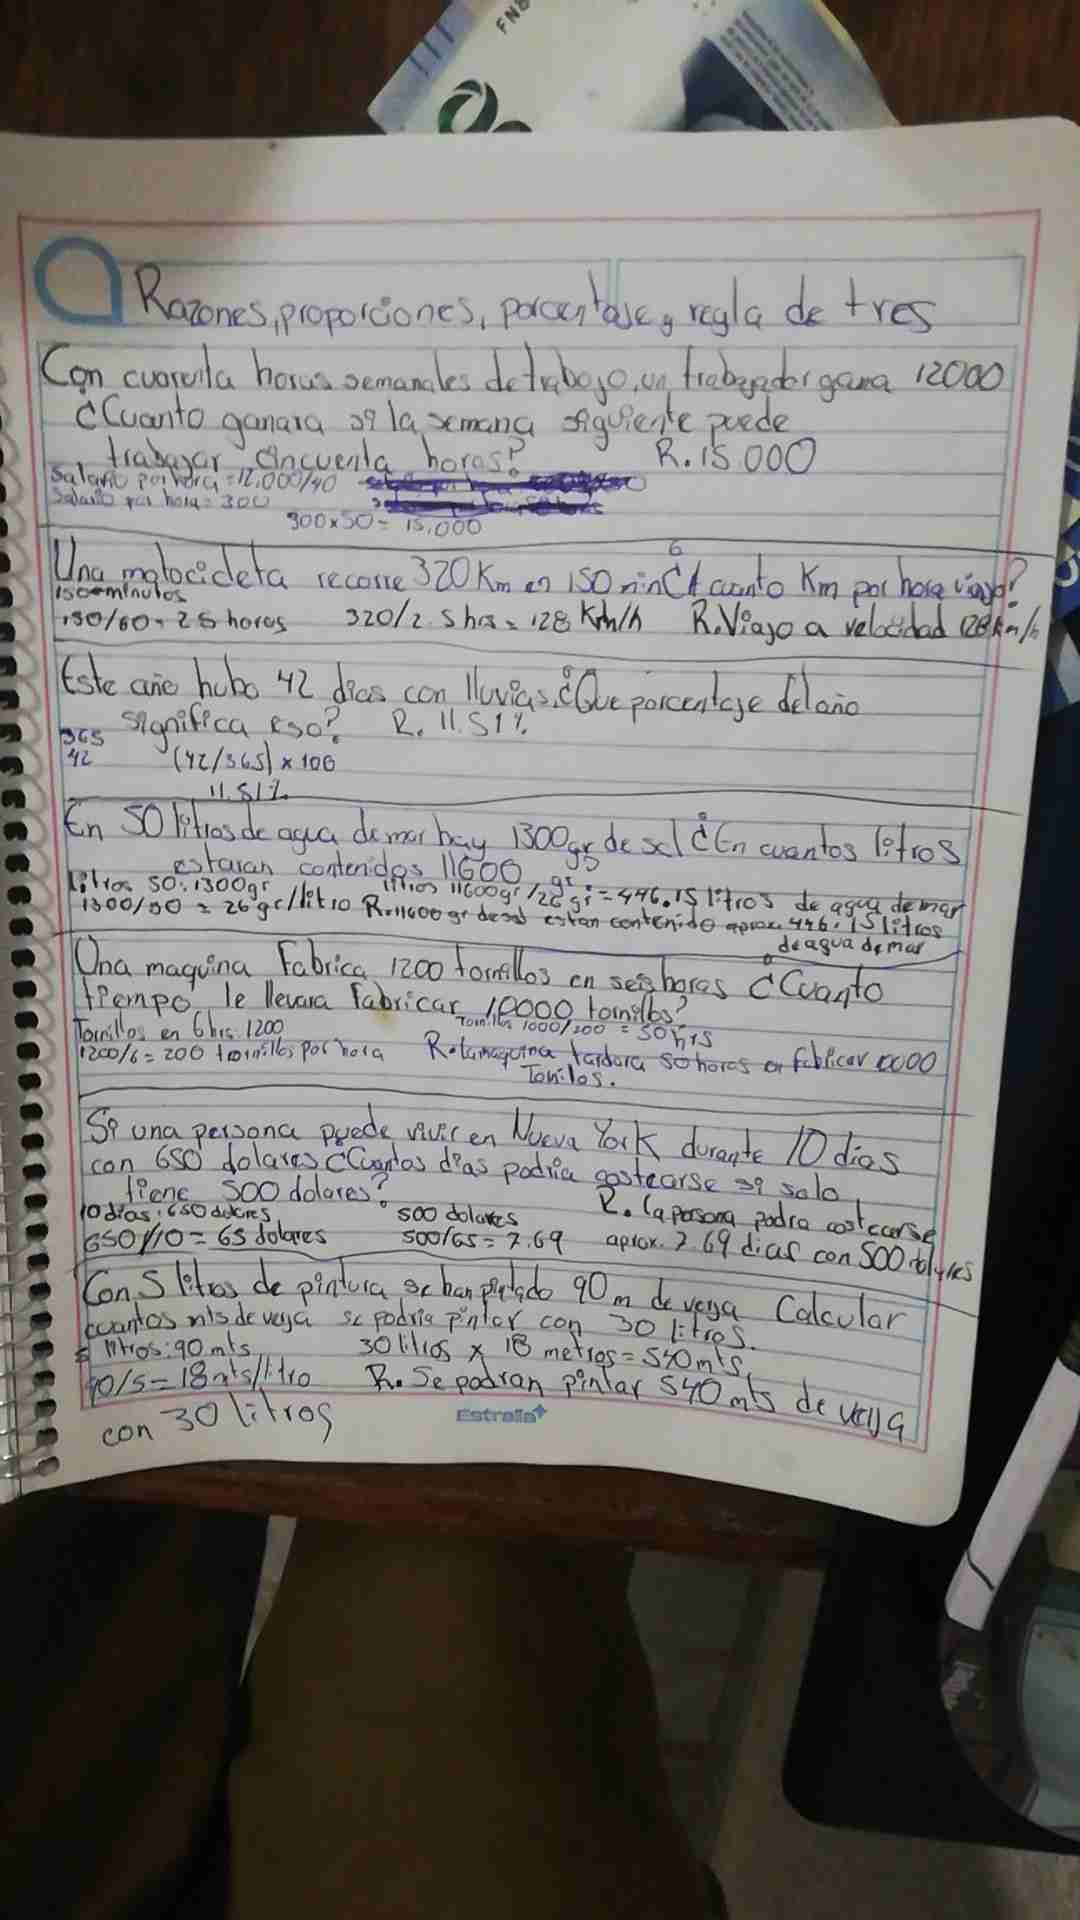 FNB
Razones, proporciones, porcentaje y regla de tres
Con cuarenta horas semanales de trabajo, un trabajador gana 12000
¿Cuanto ganara si la semana siguiente puede
trabajar cincuenta horas? R. 15.000
Salario por hora = 12.000/40
Salario por hora = 300
300x50 = 15.000
Una motocicleta recorre 320 Km en 150 min ¿A cuanto Km por hora viajo?
150 minutos
150/60 = 2.5 horas 320/2.5 hrs = 128 Km/h R. Viajo a velocidad 128 Km/h
Este año hubo 42 dias con lluvias ¿Que porcentaje del año
significa eso? R. 11.51%
365
42 (42/365) x 100
11.51%
En 50 litros de agua de mar hay 1300gr de sal ¿En cuantos litros
estaran contenidos 11600 gr
litros 50:1300gr litros 11600gr/26gr = 446.15 litros de agua de mar
1300/50 = 26gr/litro R. 11600 gr de sal estan contenido aprox. 446.15 litros
de agua de mar
Una maquina Fabrica 1200 tornillos en seis horas ¿Cuanto
tiempo le llevara Fabricar 10000 tornillos?
Tornillos en 6 hrs: 1200 Tornillos 1000/200 = 50 hrs
1200/6 = 200 tornillos por hora R. La maquina tardara 50 horas en fabricar 10000
Tonilos.
Si una persona puede vivir en Nueva York durante 10 dias
con 650 dolares ¿Cuantos dias podria costearse si solo
tiene 500 dolares?
10 dias: 650 dolares 500 dolares R. la persona podra costearse
650/10 = 65 dolares 500/65 = 7.69 aprox. 7.69 dias con 500 dolares
Con 5 litros de pintura se han pintado 90m de verja Calcular
cuantos mts de verja se podria pintar con 30 litros.
5 litros: 90 mts 30 litros x 18 metros = 540 mts
90/5 = 18 mts/litro R. Se podran pintar 540 mts de verja
con 30 litros
Estrella